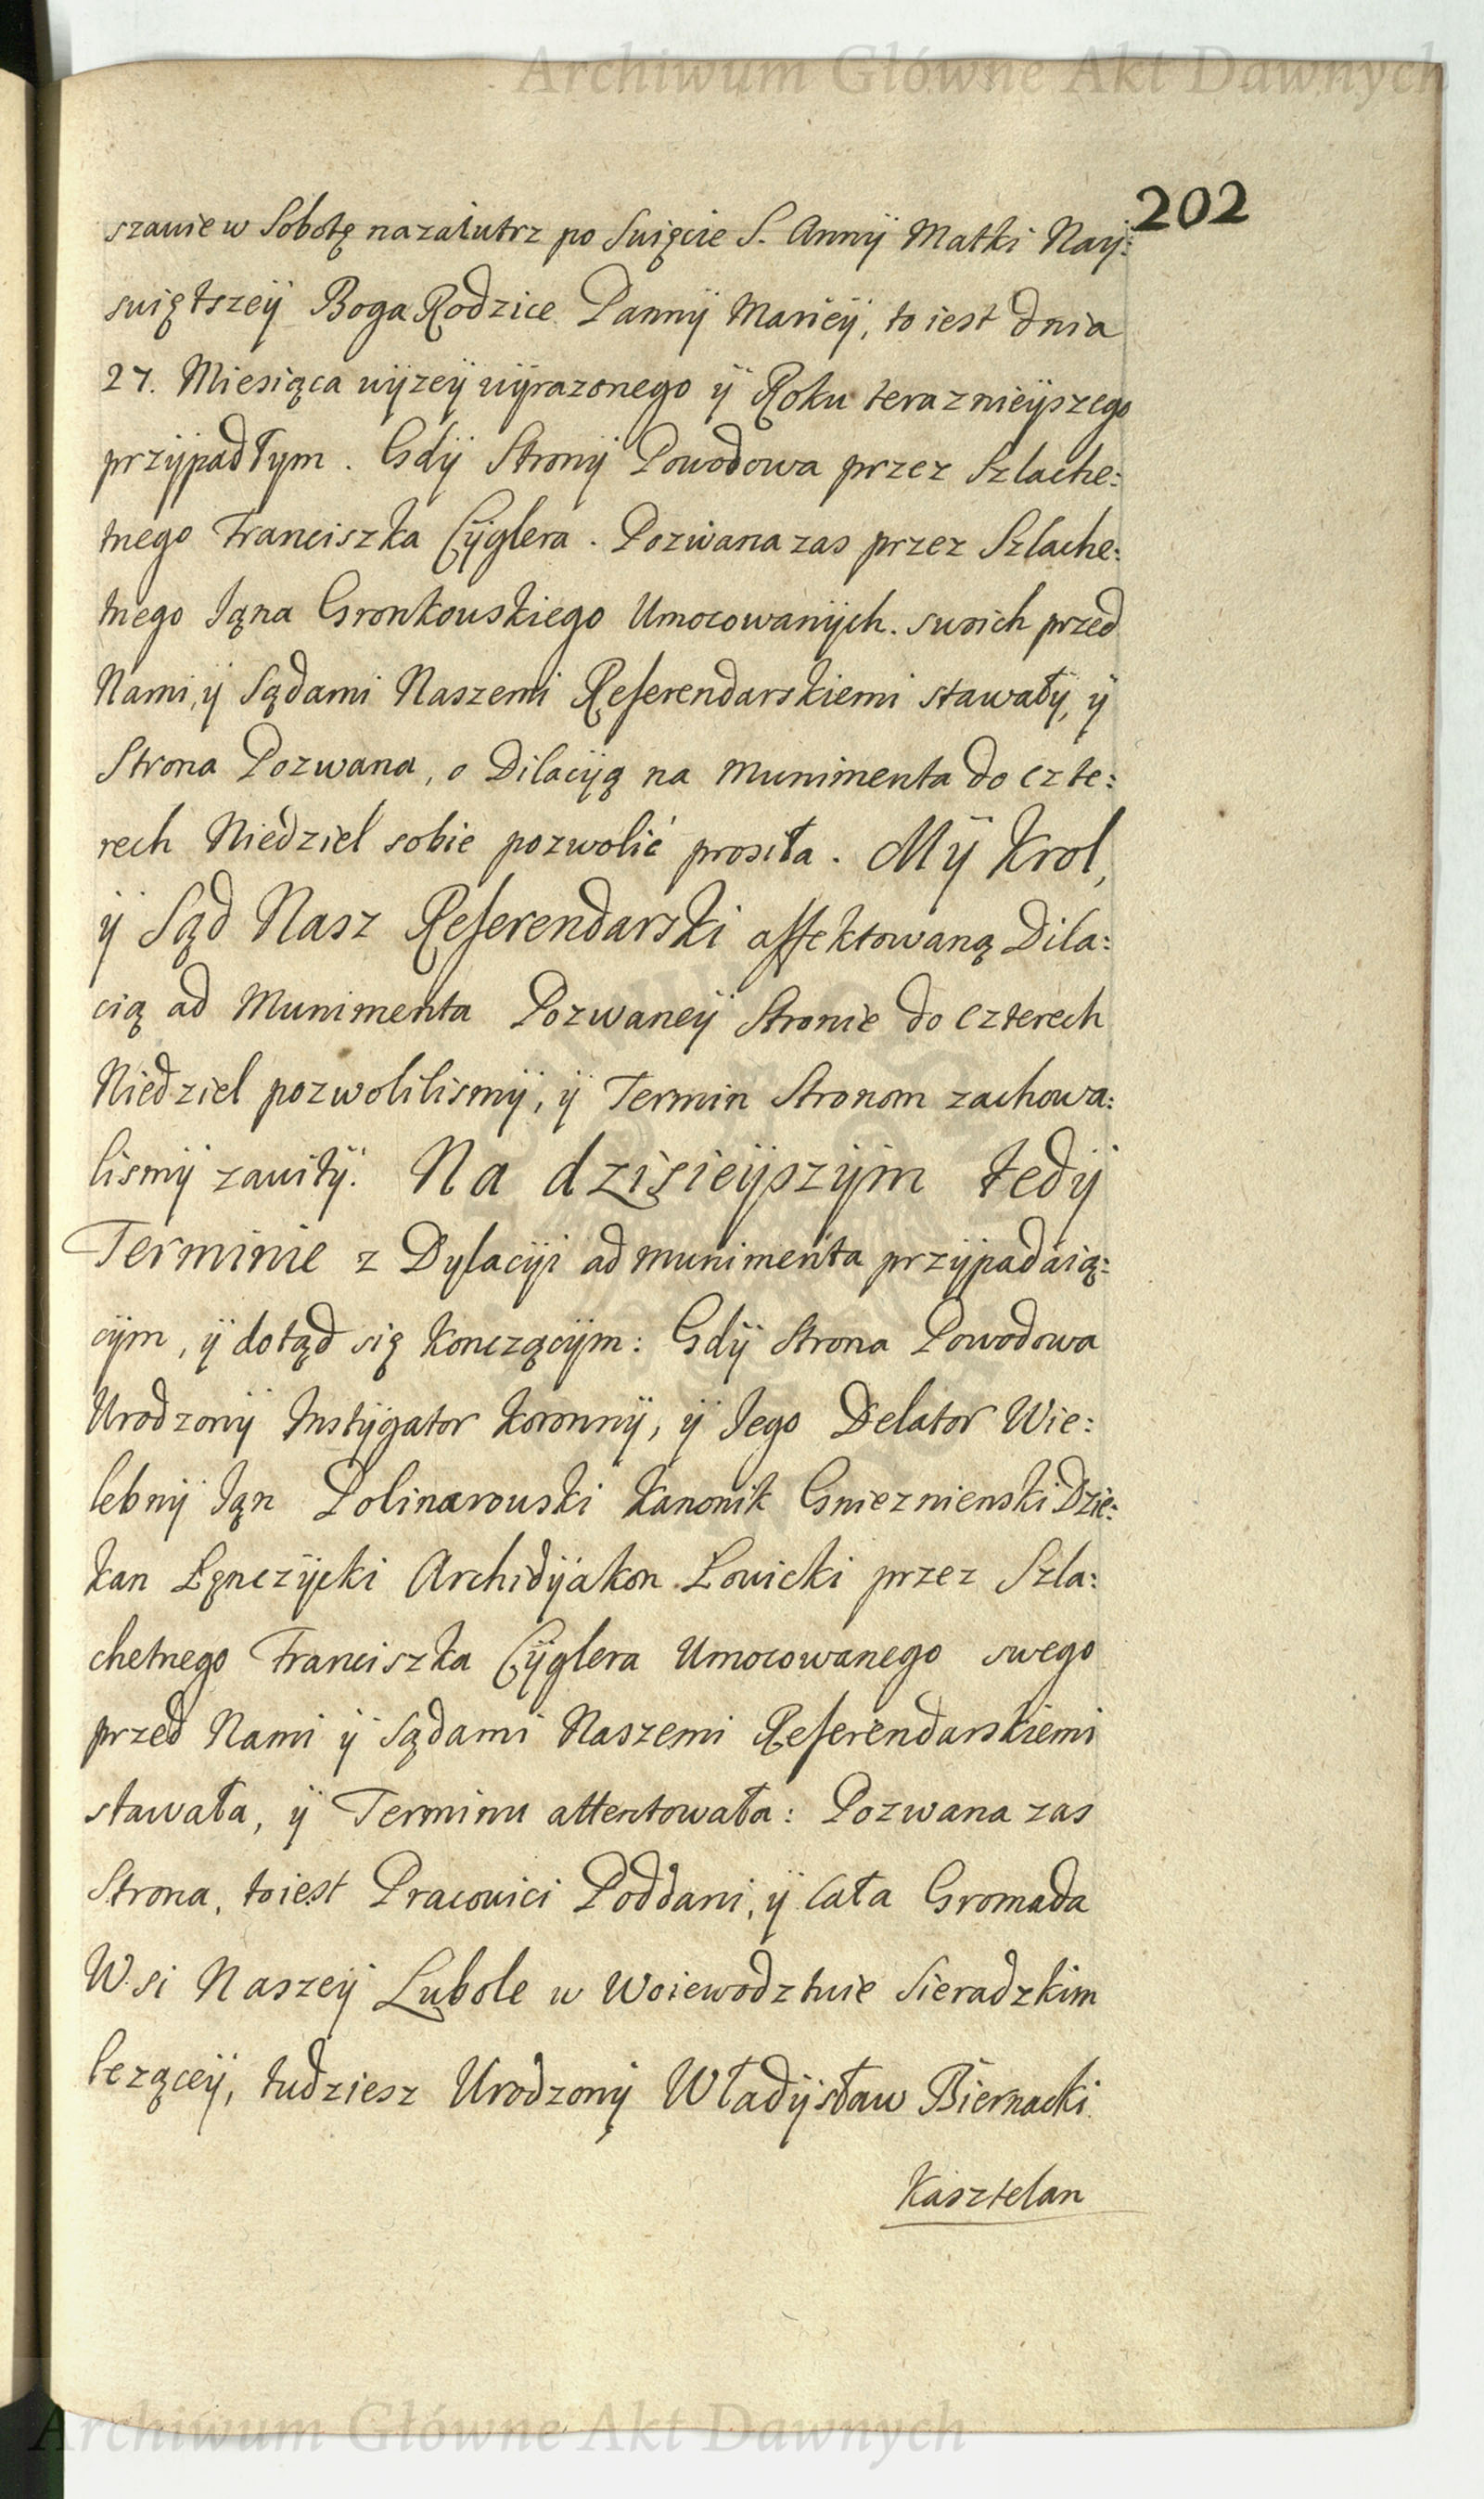 Archiwum Główne Akt Dawnych
202
szawie w Sobotę nazaiutrz po Swięcie S. Annÿ Matki Nay:
swiętszeÿ Boga Rodzice Pannÿ Mariëÿ, to iest dnia
27. Miesiąca wÿzeÿ wÿrazonego ÿ Roku teraznieÿszego
przÿpadłym. Gdÿ Stronÿ Powodowa przez Szlache:
tnego Franciszka Cÿglera. Pozwana zas przez Szlache:
tnego Jąna Gronkowskiego Umocowanÿch. swoich przed
Nami, ÿ Sądami Naszemi Referendarskiemi stawałÿ, ÿ
Strona Pozwana, o Dilacÿą na munimenta do czte:
rech Niedziel sobie pozwolić prosiła. Mÿ Krol,
ÿ Sąd Nasz Referendarski affektowaną Dila:
cią ad Munimenta Pozwaneÿ Stronie do czterech
Niedziel pozwolilismÿ, ÿ Termin Stronom zachowa:
lismÿ zawitÿ. Na dzisieÿszÿm tedÿ
Terminie z Dylacÿi ad munimenta przÿpadaią:
cÿm, ÿ dotąd się konczącÿm: Gdÿ Strona Powodowa
Urodzonÿ Instÿgator Koronnÿ, ÿ Jego Delator Wie:
lebnÿ Jąn Polinarowski Kanonik Gnieznienski Dzie:
kan Łęnczÿcki Archidÿakon Łowicki przez Szla:
chetnego Franciszka Cÿglera Umocowanego swego
przed Nami ÿ Sądami Naszemi Referendarskiemi
stawała, ÿ Terminu attentowała: Pozwana zas
Strona, toiest Pracowici Poddani, ÿ cała Gromada
Wsi Naszeÿ Lubole w Woiewodztwie Sieradzkim
leząceÿ, tudziesz Urodzonÿ Władÿsław Biernacki
Kasztelan
Archiwum Główne Akt Dawnych